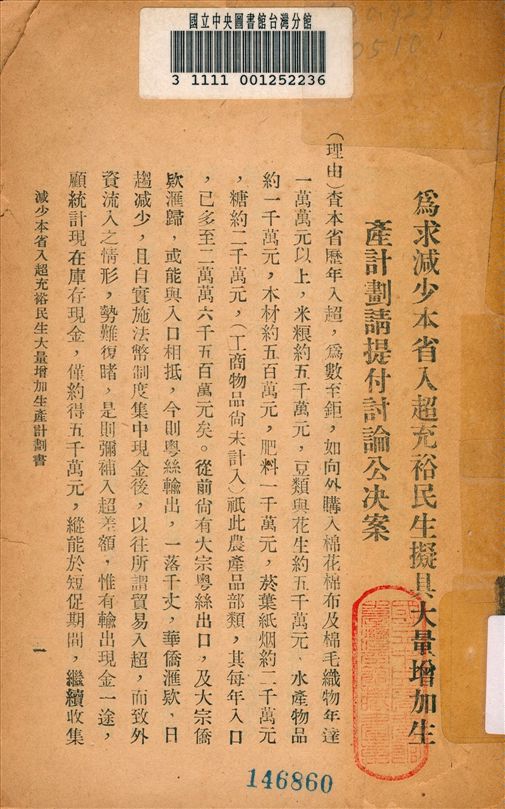 國立中央圖書館台灣分館
3 1111 001252236
爲求減少本省入超充裕民生擬具大量增加生
產計劃請提付討論公决案
(理由)查本省歷年入超,爲數至鉅,如向外購入棉花棉布及棉毛織物年達
一萬萬元以上,米粮約五千萬元,豆類與花生約五千萬元、水產物品
約一千萬元,木材約五百萬元,肥料一千萬元,菸葉紙烟約二千萬元
,糖約二千萬元,(工商物品尙未計入)祇此農產品部類,其每年入口
,已多至二萬萬六千五百萬元矣。從前尙有大宗粵絲出口,及大宗僑
欵滙歸,或能與入口相抵,今則粵絲輸出,一落千丈,華僑滙欵,日
趨减少,且自實施法幣制度集中現金後,以往所謂貿易入超,而致外
資流入之情形,勢難復睹,是則彌補入超差額,惟有輸出現金一途,
顧統計現在庫存現金,僅約得五千萬元,縱能於短促期間,繼續收集
減少本省入超充裕民生大量增加生產計劃書
一
146860